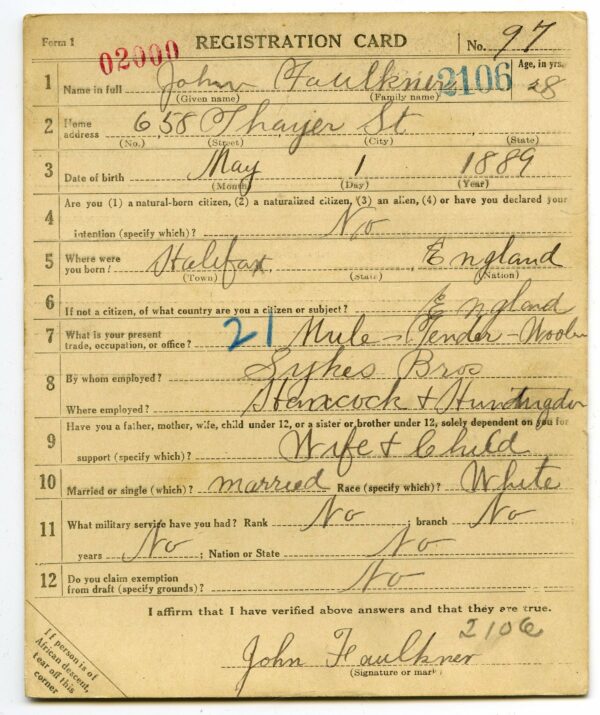 Form 1 02000 REGISTRATION CARD No. 97
1 Name in full John Faulkner 2106 Age, in yrs. 28
(Given name) (Family name)
2 Home address 658 Thayer St
(No.) (Street) (City) (State)
3 Date of birth May 1 1889
(Month) (Day) (Year)
4 Are you (1) a natural-born citizen, (2) a naturalized citizen, (3) an alien, (4) or have you declared your
intention (specify which)? No
5 Where were you born? Halifax England
(Town) (State) (Nation)
6 If not a citizen, of what country are you a citizen or subject? England
7 What is your present trade, occupation, or office? 21 Mule-Tender-Woolen
8 By whom employed? Sykes Bros
Where employed? Hancock & Huntingdon
9 Have you a father, mother, wife, child under 12, or a sister or brother under 12, solely dependent on you for
support (specify which)? Wife & Child
10 Married or single (which)? married Race (specify which)? White
11 What military service have you had? Rank No ; branch No
years No ; Nation or State No
12 Do you claim exemption from draft (specify grounds)? No
I affirm that I have verified above answers and that they are true.
2106
John Faulkner
(Signature or mark)
If person is of
African descent,
tear off this
corner